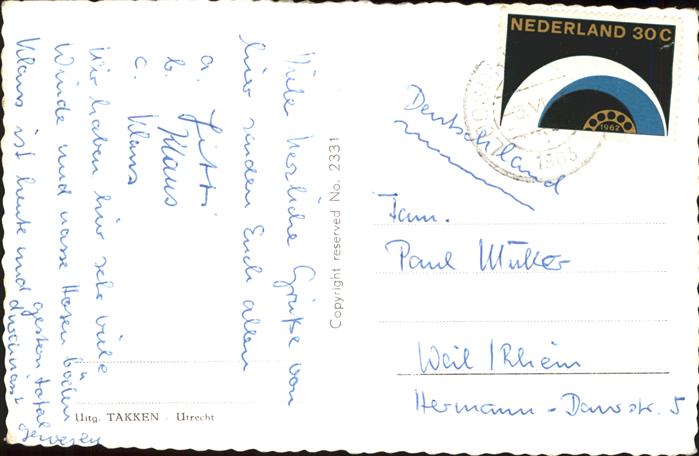 Viele herzliche Grüße von
hier senden Euch allen
a. Fitti
b. Klaus
c. Klaus
Wir haben hier sehr viele
Winde und nasse Hosen
Klaus ist heute und gestern total
durchnässt gewesen
Uitg. TAKKEN - Utrecht
Copyright reserved No. 2331
NEDERLAND 30 C
1962
1963
Deutschland
Fam.
Paul Müller
Weil / Rhein
Hermann - Daurstr. 5